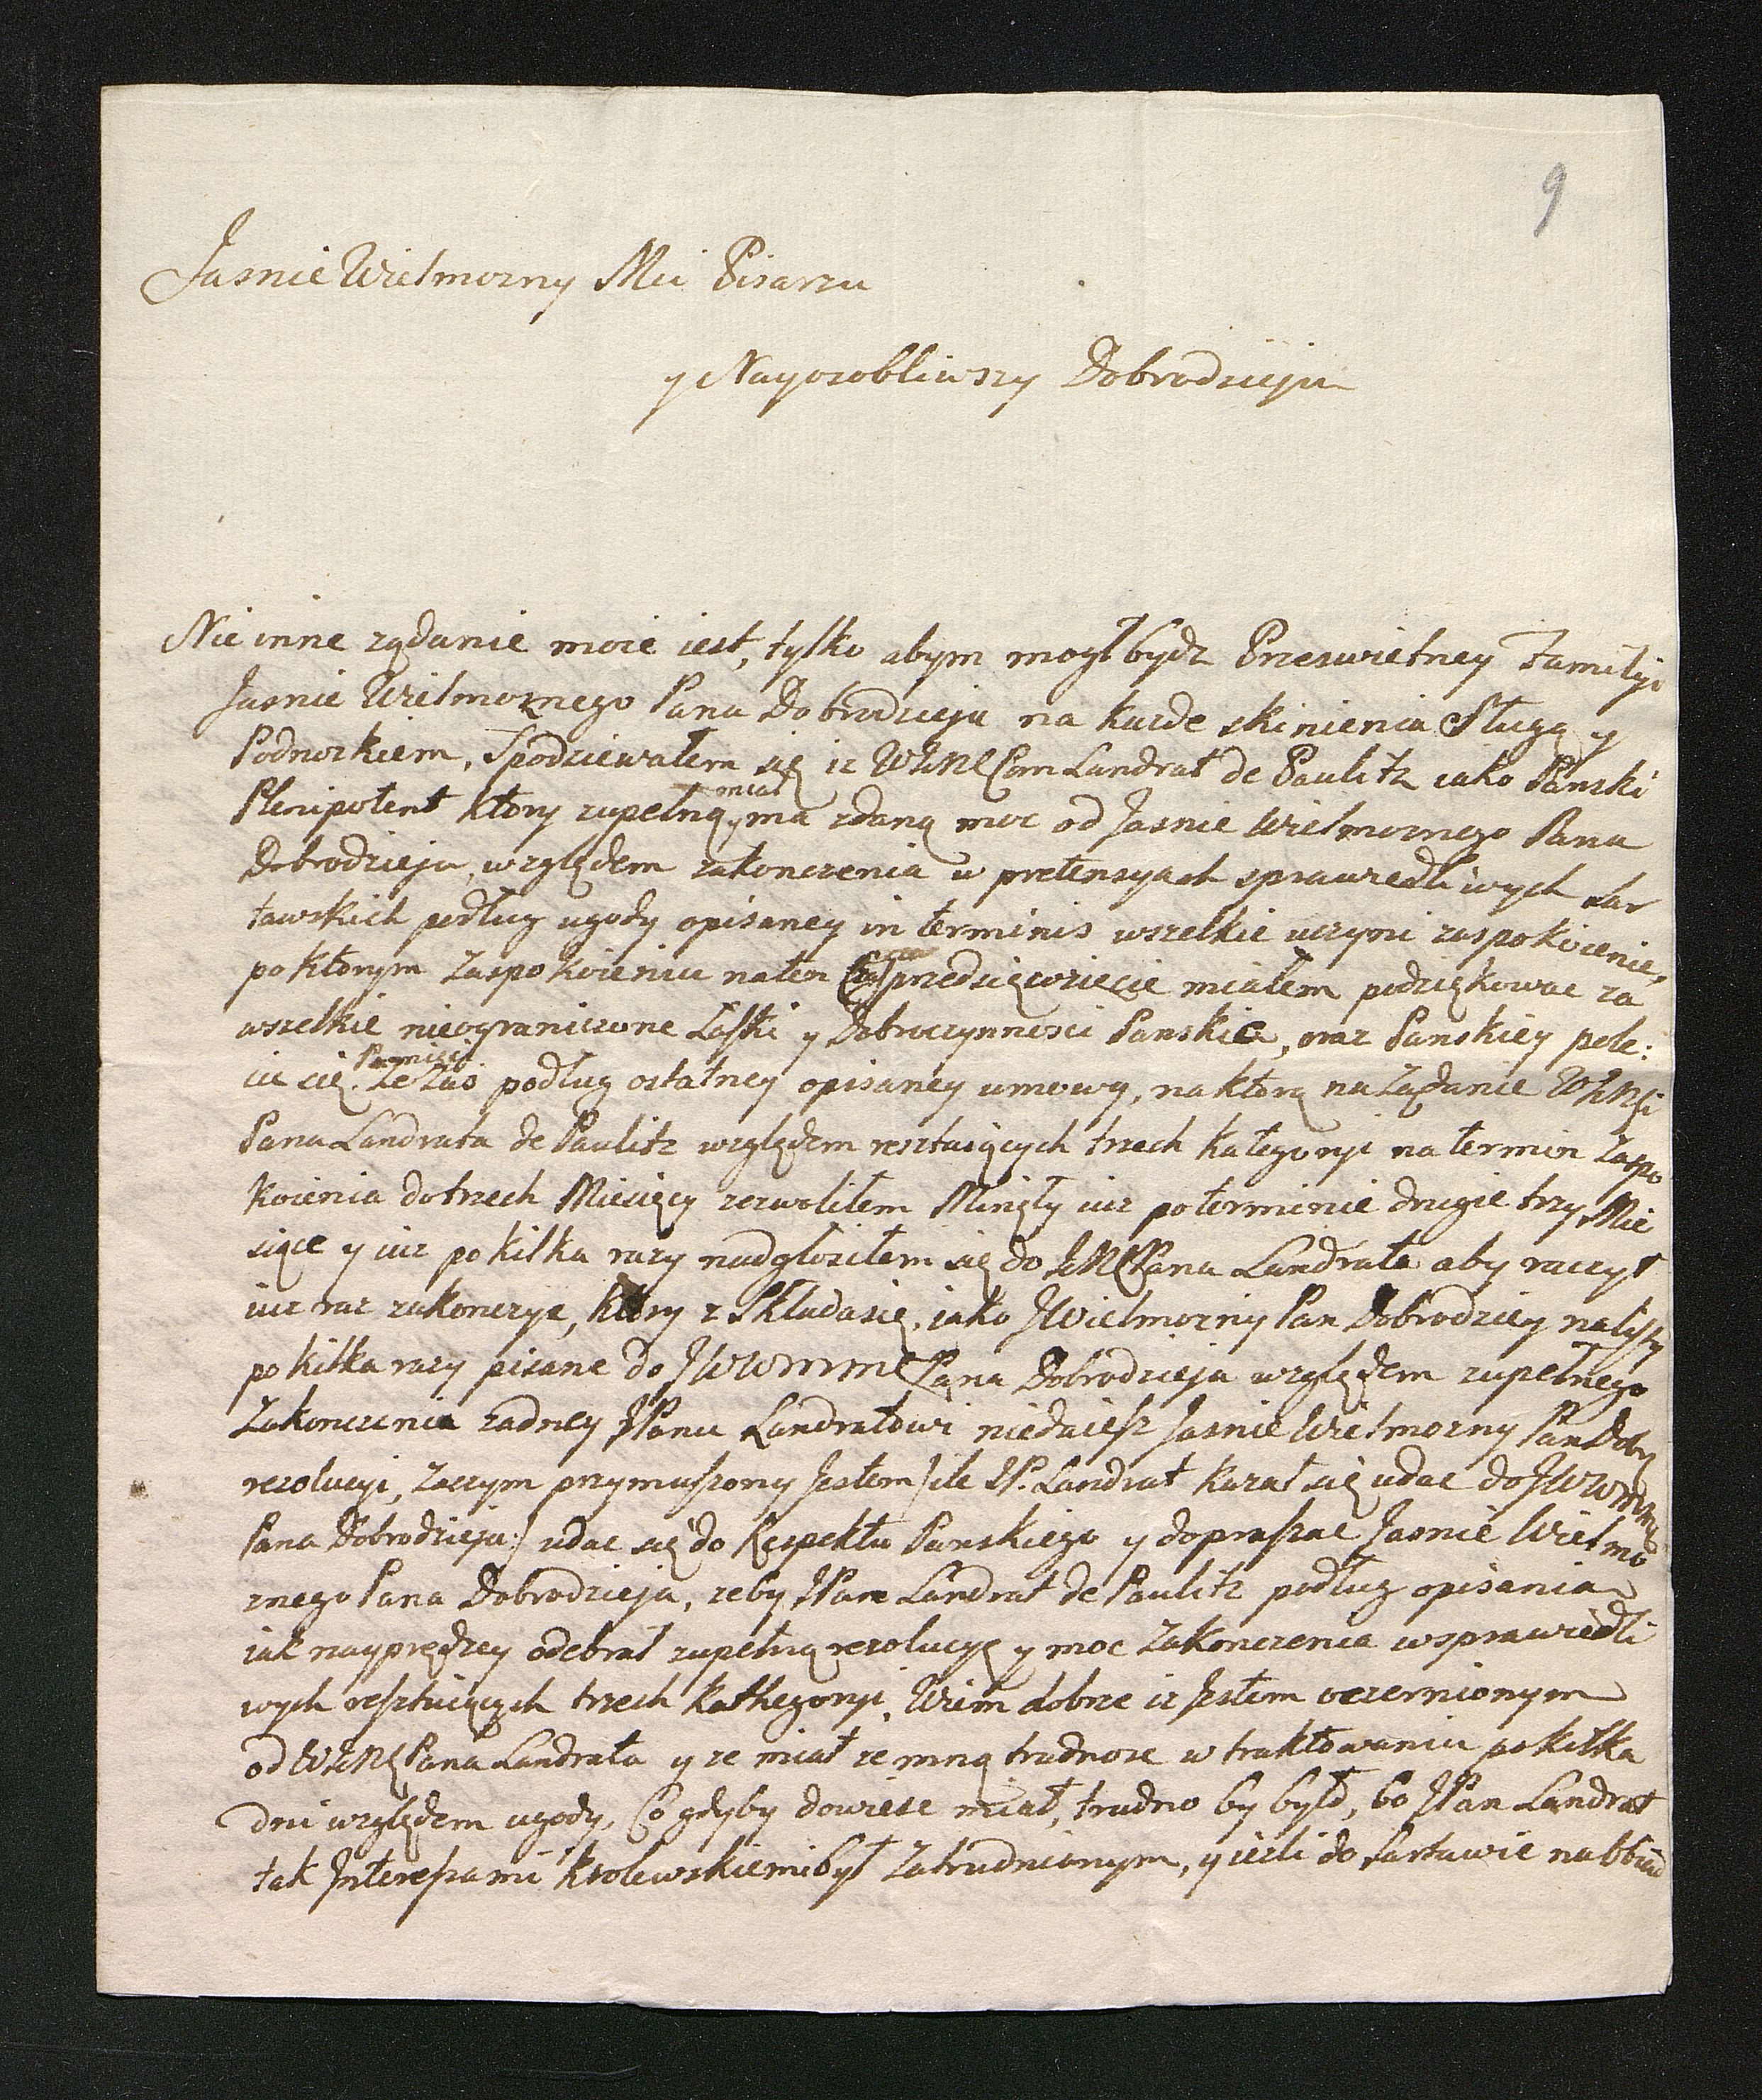 9
Jasnie Wielmozny Mci Pisarzu
y Nayosobliwszy Dobrodzieju
Nie inne ządanie moie iest, tylko abym mogł bydz Przeswietney Familyi
Jasnie Wielmoznego Pana Dobrodzieja na kazde skinienia Sługą y
Podnozkiem, Spodziewałem się iz Pan Landrat de Paulitz iako Panski
Plenipotent ktory zupełną miał ma zdaną moc od Jasnie Wielmoznego Pana
Dobrodzieja, względem zakonczenia w pretensyach sprawiedliwych Sar
tawskich podług ugody opisaney in terminis wszelkie uczyni zaspokoienie,
po ktorym Zaspokoieniu na ten czas przedsięwzięcie miałem podziękowac za
wszelkie nieograniczone Łaski y Dobroczynnosci Panskie, oraz Panskiey pole:
cic się Pamięci. Ze zas podług ostatney opisaney umowy, na ktorą na Ządanie
Pana Landrata de Paulitz względem resztuiących trzech kategoryi na termin Zaspo
koienia do trzech Miesięcy zezwoliłem Minęły iuz po terminie drugie trzy Mie
siące y iuz po kilka razy nadgłosiłem się do Pana Landrata aby raczył
iuz raz zakonczyc, ktory z Składa się, iako JWielmozny Pan Dobrodziey na listy
po kilka razy pisane do Pana Dobrodzieja względem zupełnego
Zakonczenia zadney JPanu Landratowi niedaiesz Jasnie Wielmozny Pan Dobry
rezolucyi, Zaczym przymuszony Jestem /: ile JP. Landrat kazał się udac do
Pana Dobrodzieja :/ udac się do Respektu Panskiego y dopraszac Jasnie Wielmo
znego Pana Dobrodzieja, zeby JPan Landrat de Paulitz podług opisania
iak nayprędzey odebrał zupełną rezolucyę y moc Zakonczenia w sprawiedli
wych resztuiących trzech kathegoryi. Wiem dobrze iz Jestem oczernionym
od Pana Landrata y ze miał ze mną trudnosc w traktowaniu po kilka
dni względem ugody, Co gdyby dowiesc miał, trudno by było, bo JPan Landrat
tak Interessami krolewskiemi był Zatrudnionym, y iezli do Sartawic na obiad